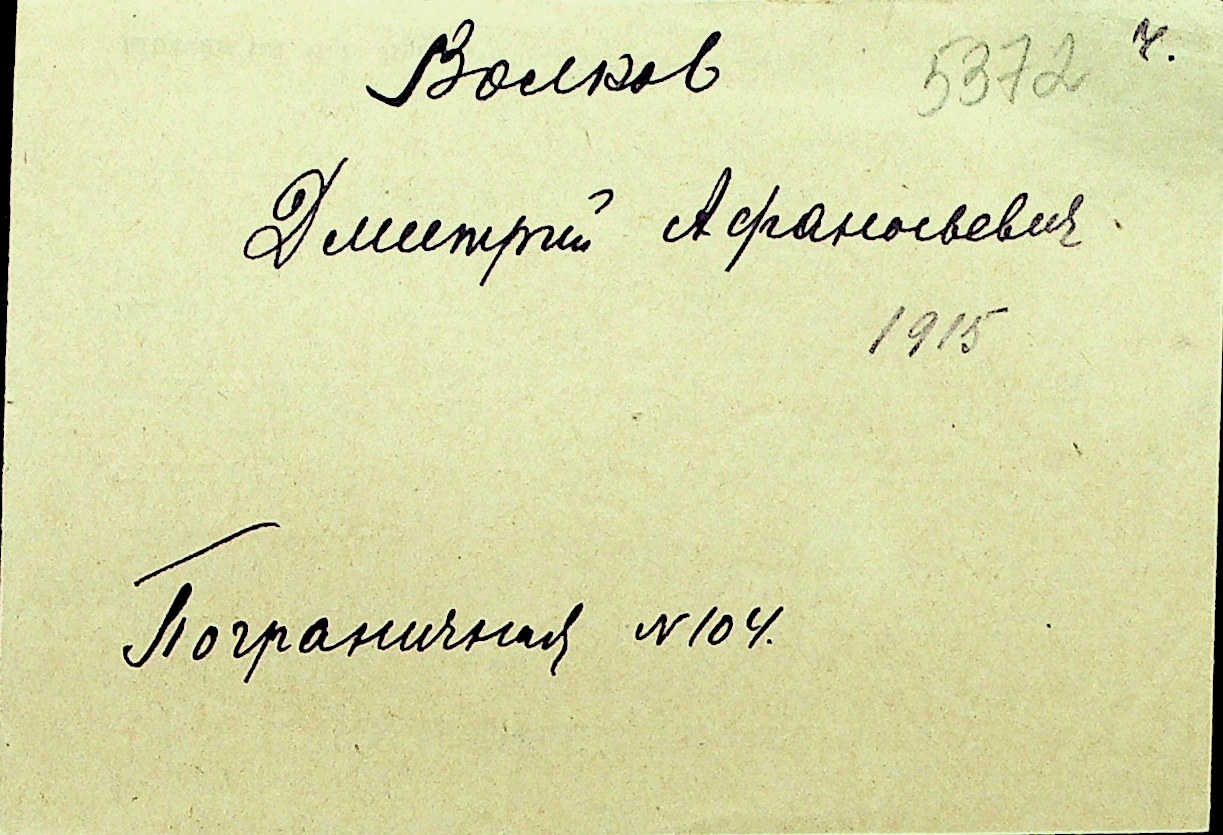 Волков 5372 7.
Дмитрий Афанасьевич
1915
Пограничная N 104.